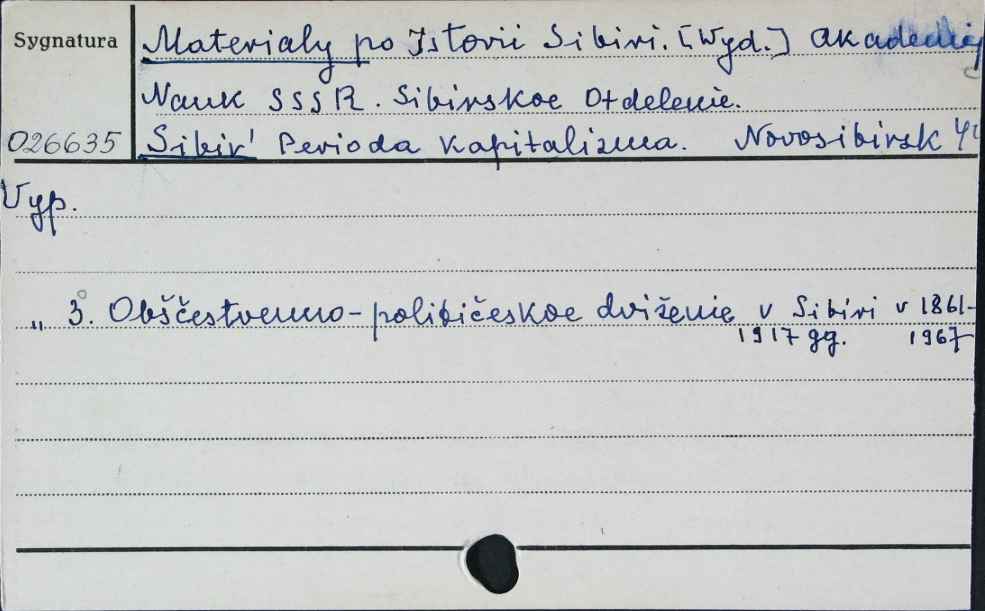 Sygnatura
Materialy po Istorii Sibiri. [Wyd.] Akademija
Nauk SSSR. Sibirskoe Otdelenie.
026635 Sibir' Perioda Kapitalizma. Novosibirsk
Vyp.
„ 3. Obščestvenno-političeskoe dviženie v Sibiri v 1861-
1917 gg. 1967